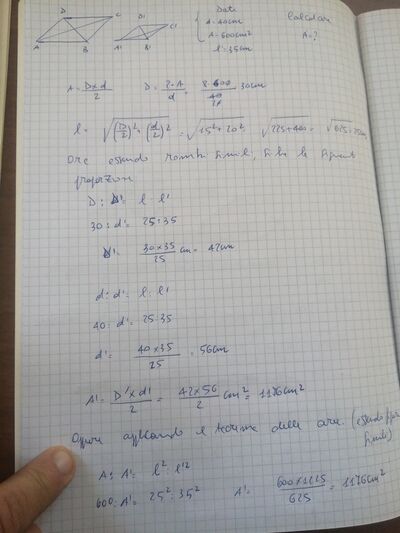 D C
D1 C1
A B
A1 B1
Date
d=40cm
A=600cm²
l'=35cm
Calcolare
A=?
A= D×d/2 D= 2·A/d = 2·600/40 = 30cm
l= √((D/2)²+(d/2)²) = √15²+20² = √225+400 = √625 = 25cm
Ora essendo rombi simili, si ha la seguente
proporzione
D: D'= l: l'
30: d'= 25:35
D'= 30×35/25 cm = 42cm
d: d'= l: l'
40: d'= 25:35
d'= 40×35/25 = 56cm
A'= D'×d'/2 = 42×56/2 cm²= 1176cm²
Oppure applicando il teorema delle aree. (essendo
simili)
A: A'= l²: l'²
600: A'= 25²: 35² A'= 600×1225/625 = 1176cm²